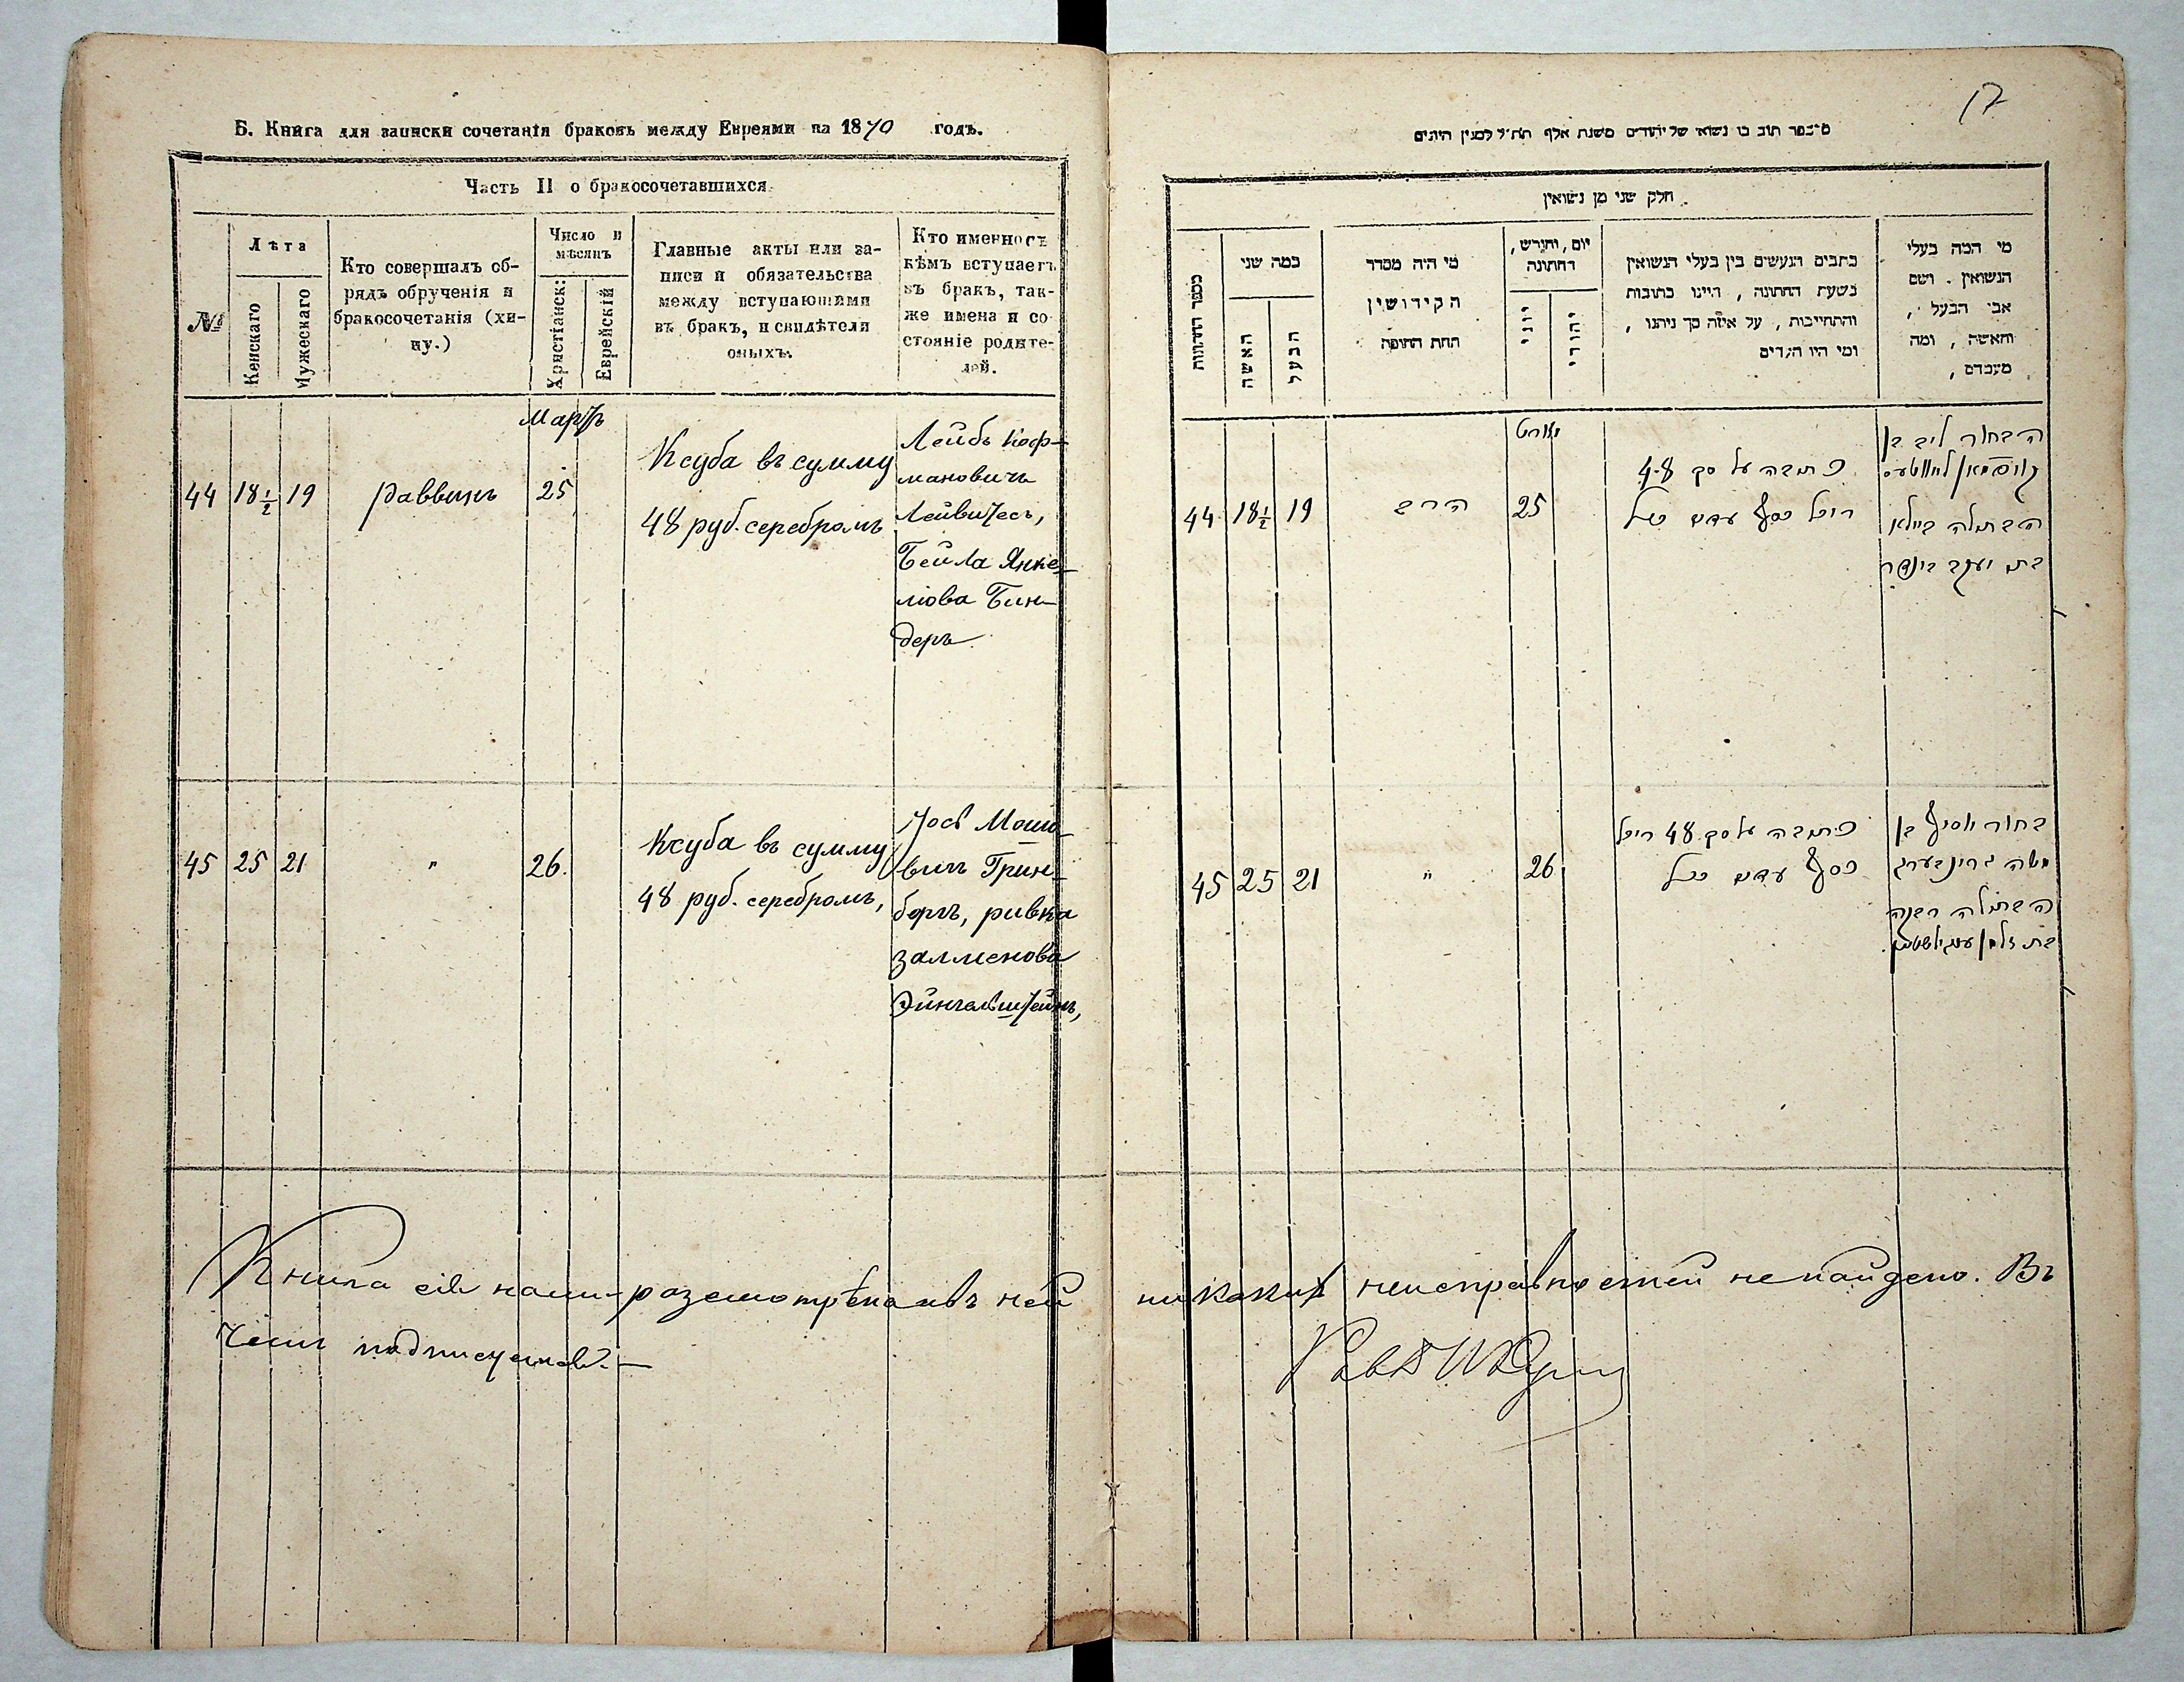 Б. Книга для записки сочетанія браковъ между Евреями на 1870 годъ.
Часть II о бракосочетавшихся.
№
Лѣта
Женскаго
Мужескаго
Кто совершалъ об-
рядъ обрученія и
бракосочетанія (хи-
пу.)
Число и
мѣсяцъ
Христіанск:
Еврейскій
Главные акты или за-
писи и обязательства
между вступающими
въ бракъ, и свидѣтели
оныхъ.
Кто именно съ
кѣмъ вступаетъ
въ бракъ, так-
же имена и со
стояніе родите-
лей.
Мартъ
44 18½ 19 раввинъ 25
Ксуба въ сумму
48 руб. серебромъ
Лейбъ Коф-
мановичъ
Лейвитесъ,
Бейла Янке-
лiова Бин-
деръ
45 25 21 " 26.
Ксуба въ сумму
48 руб. серебромъ,
Іосъ Мошо-
вичъ Грин-
бергъ, ривка
залменова
Эйнгельштейнъ,
Книга сія нами разсмотрѣна и въ ней
чемъ подписуемъ.—
17
חלק שני מן נשואין
מספר החתונות
כמה שני
האשה
הבעל
מי היה מסדר
הקידושין
תחת החופה
יום, וחודש,
דחתונה
יוני
יהודי
כתבים הנעשים בין בעלי הנשואין
בשעת החתונה, היינו כתובות
והתחייבות, על איזה סך ניתנו,
ומי היו העדים
מי המה בעלי
הנשואין. ושם
אבי הבעל,
והאשה, ומה
מעמדם,
מארט
44 18½ 19 הרב 25
כתובה על סך 48
רובל כסף
הבחור ליב בן
קויפמאן
הבתולה ביילא
בת יעקב בינדר
45 25 21 " 26
כתובה על סך 48 רובל
כסף
בחור יוסף בן
משה גרינבערג
הבתולה רבקה
בת זלמן
никакихъ неисправностей не найдено. Въ